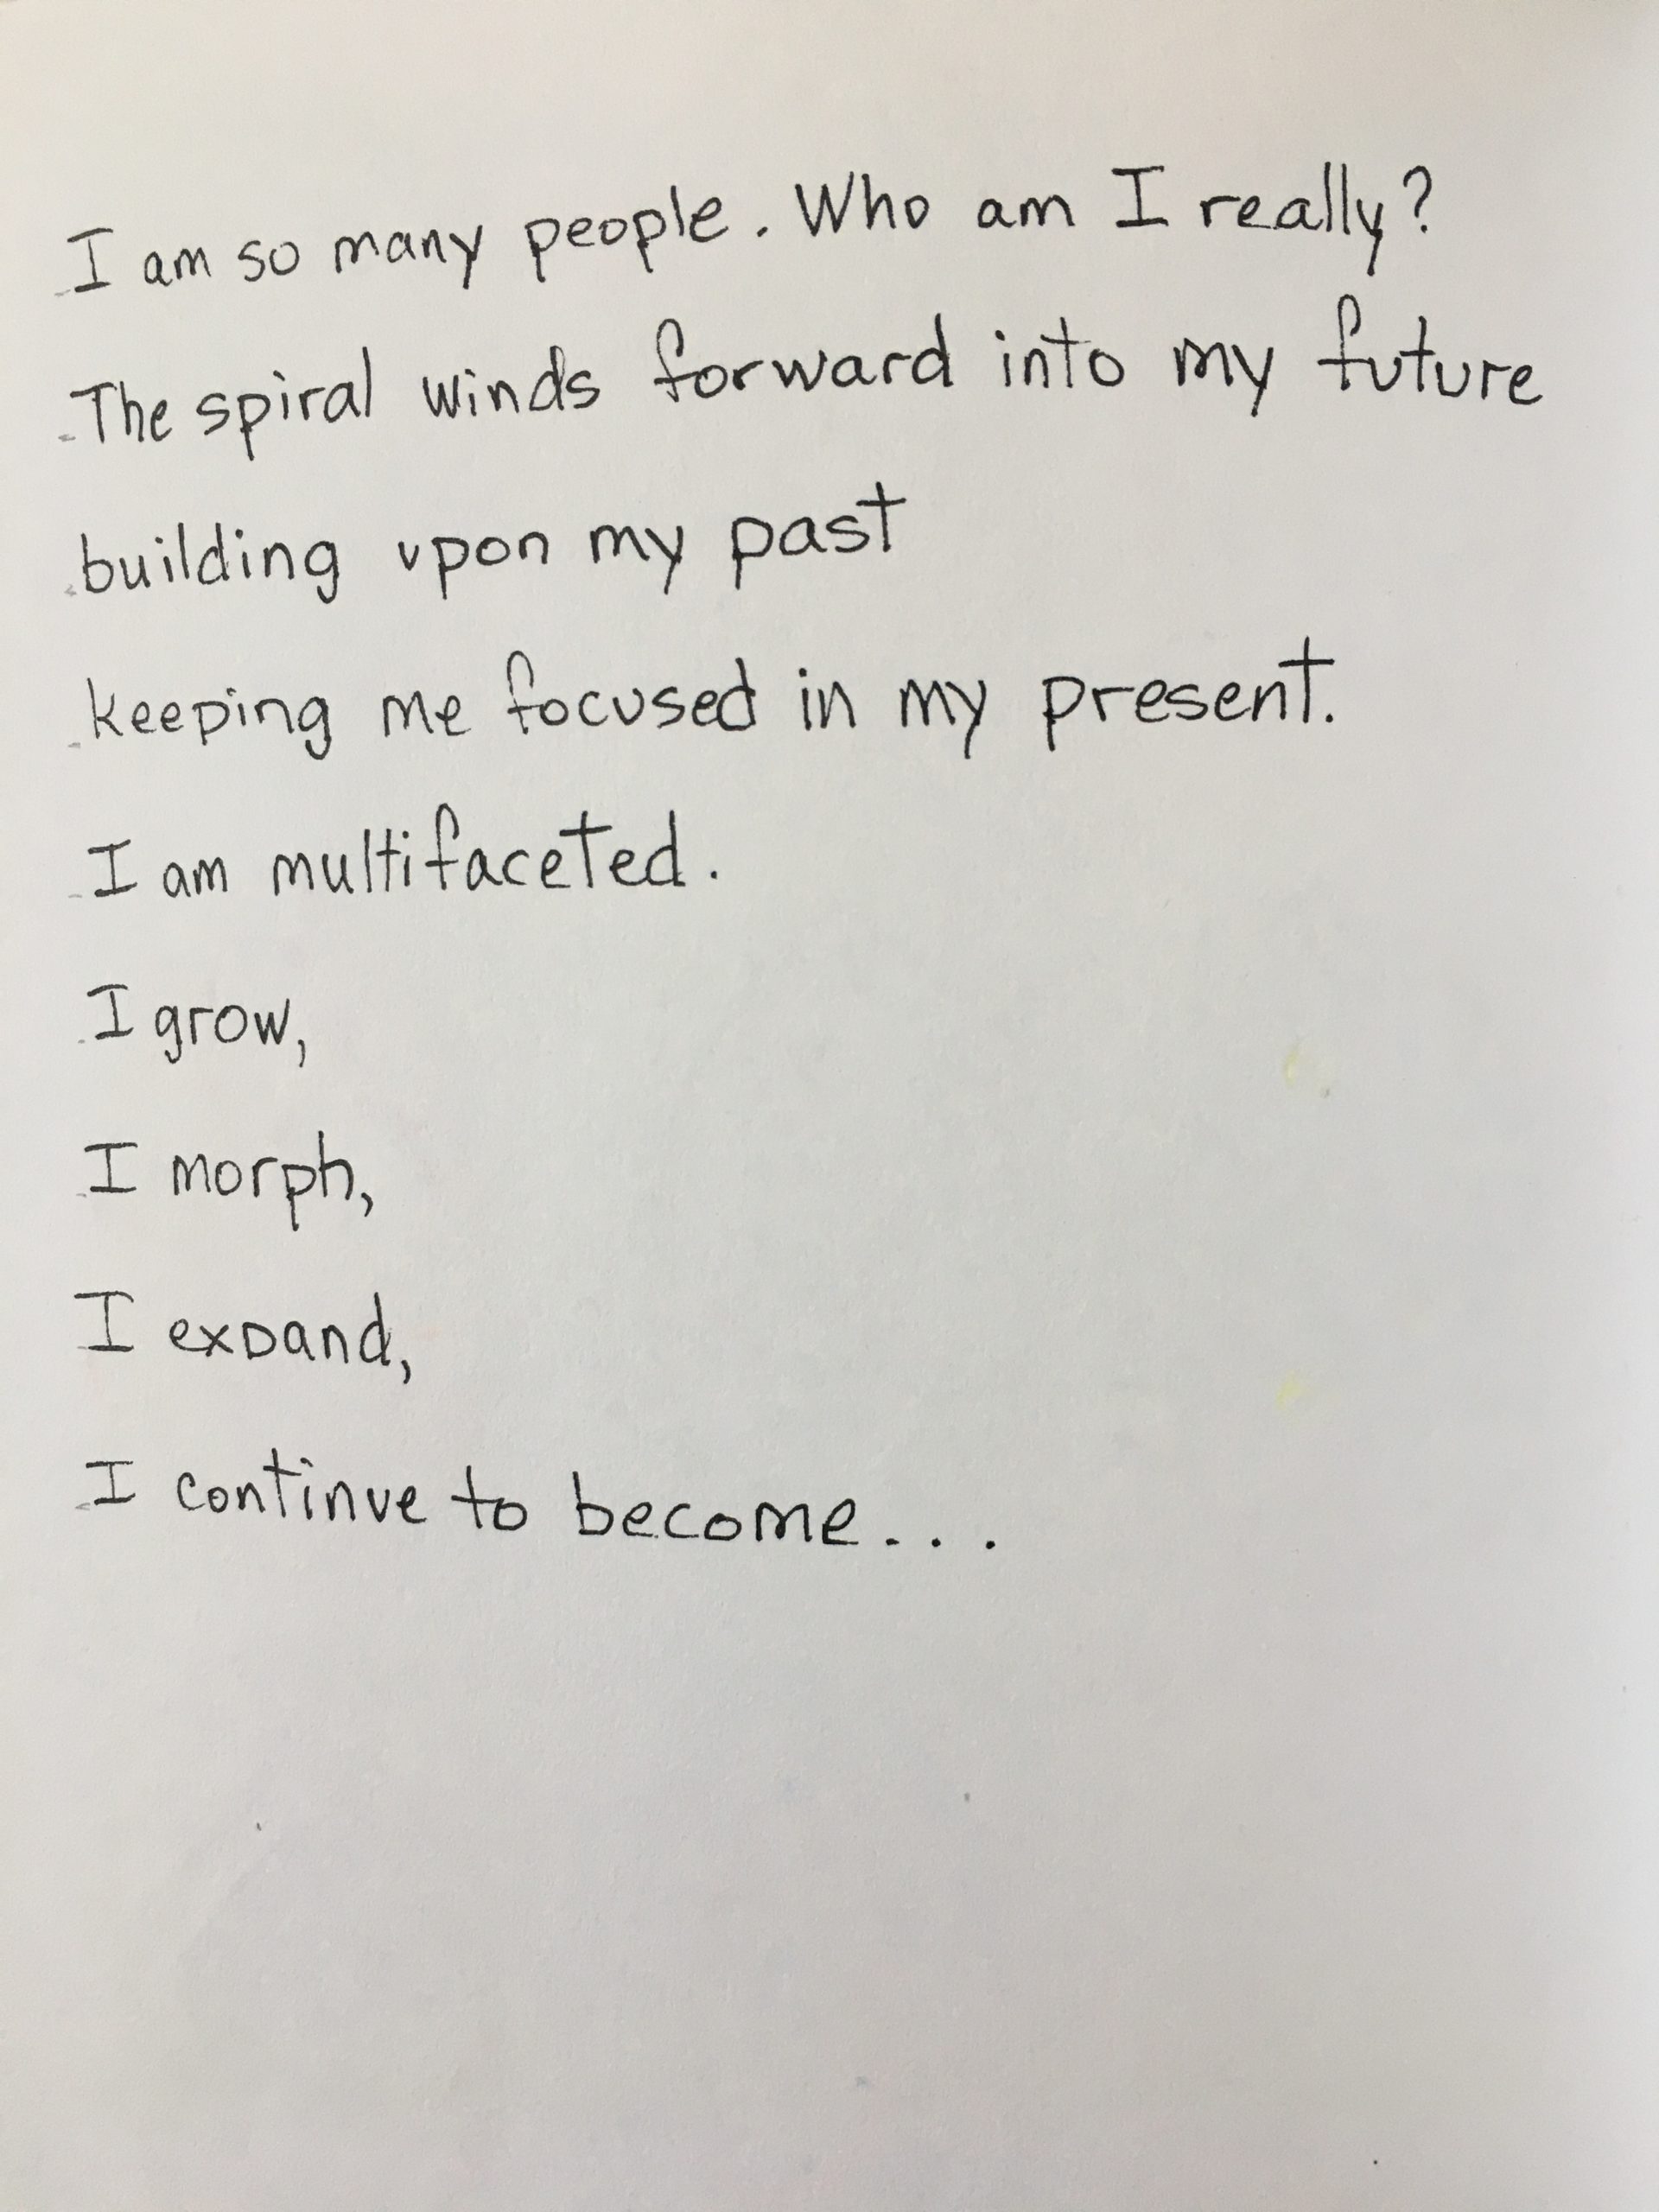 I am so many people. Who am I really?
The spiral winds forward into my future
building upon my past
keeping me focused in my present.
I am multifaceted.
I grow,
I morph,
I expand,
I continue to become...